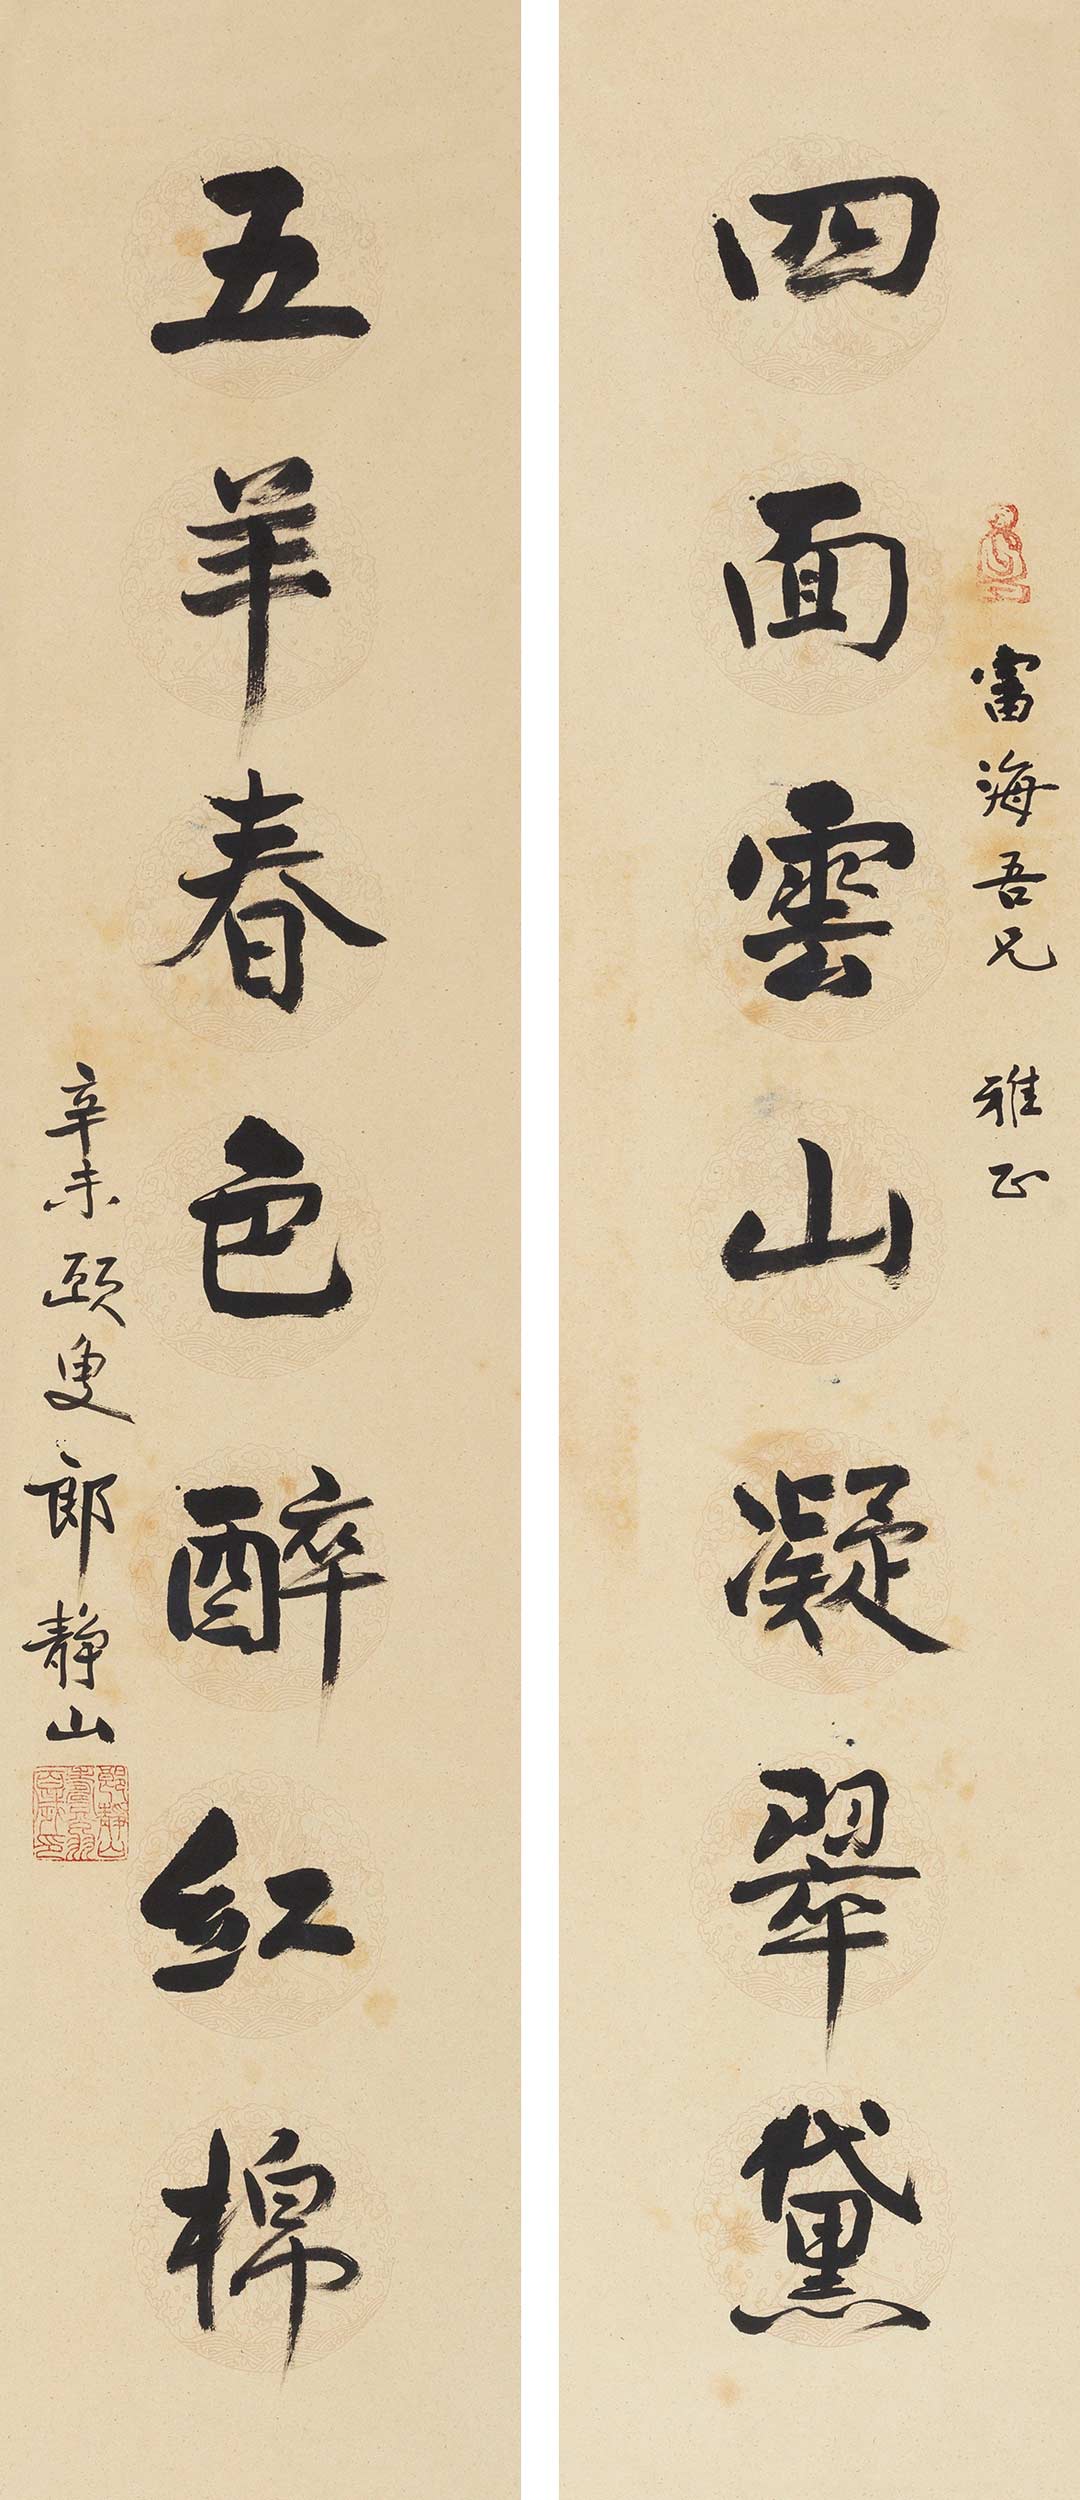 富海吾兄 雅正
四面雲山凝翠黛
五羊春色醉红棉
辛未頤叟郎静山